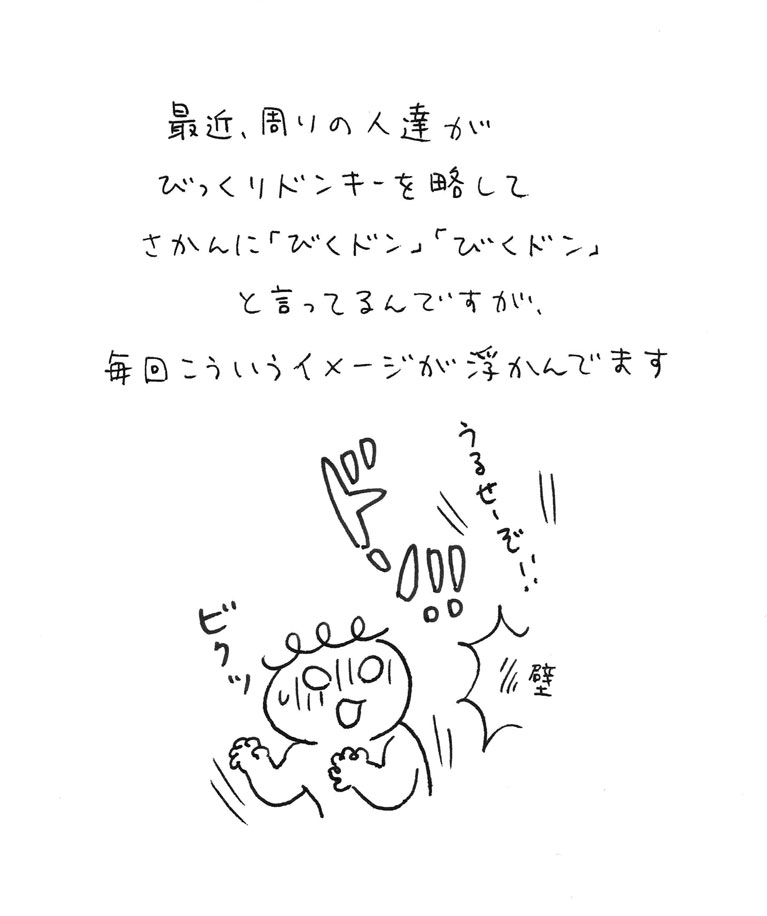 最近、周りの人達が
びっくりドンキーを略して
さかんに「びくドン」「びくドン」
と言ってるんですが、
毎回こういうイメージが浮かんでます
うるせーぞ!!
ドン!!
壁
ビクッ